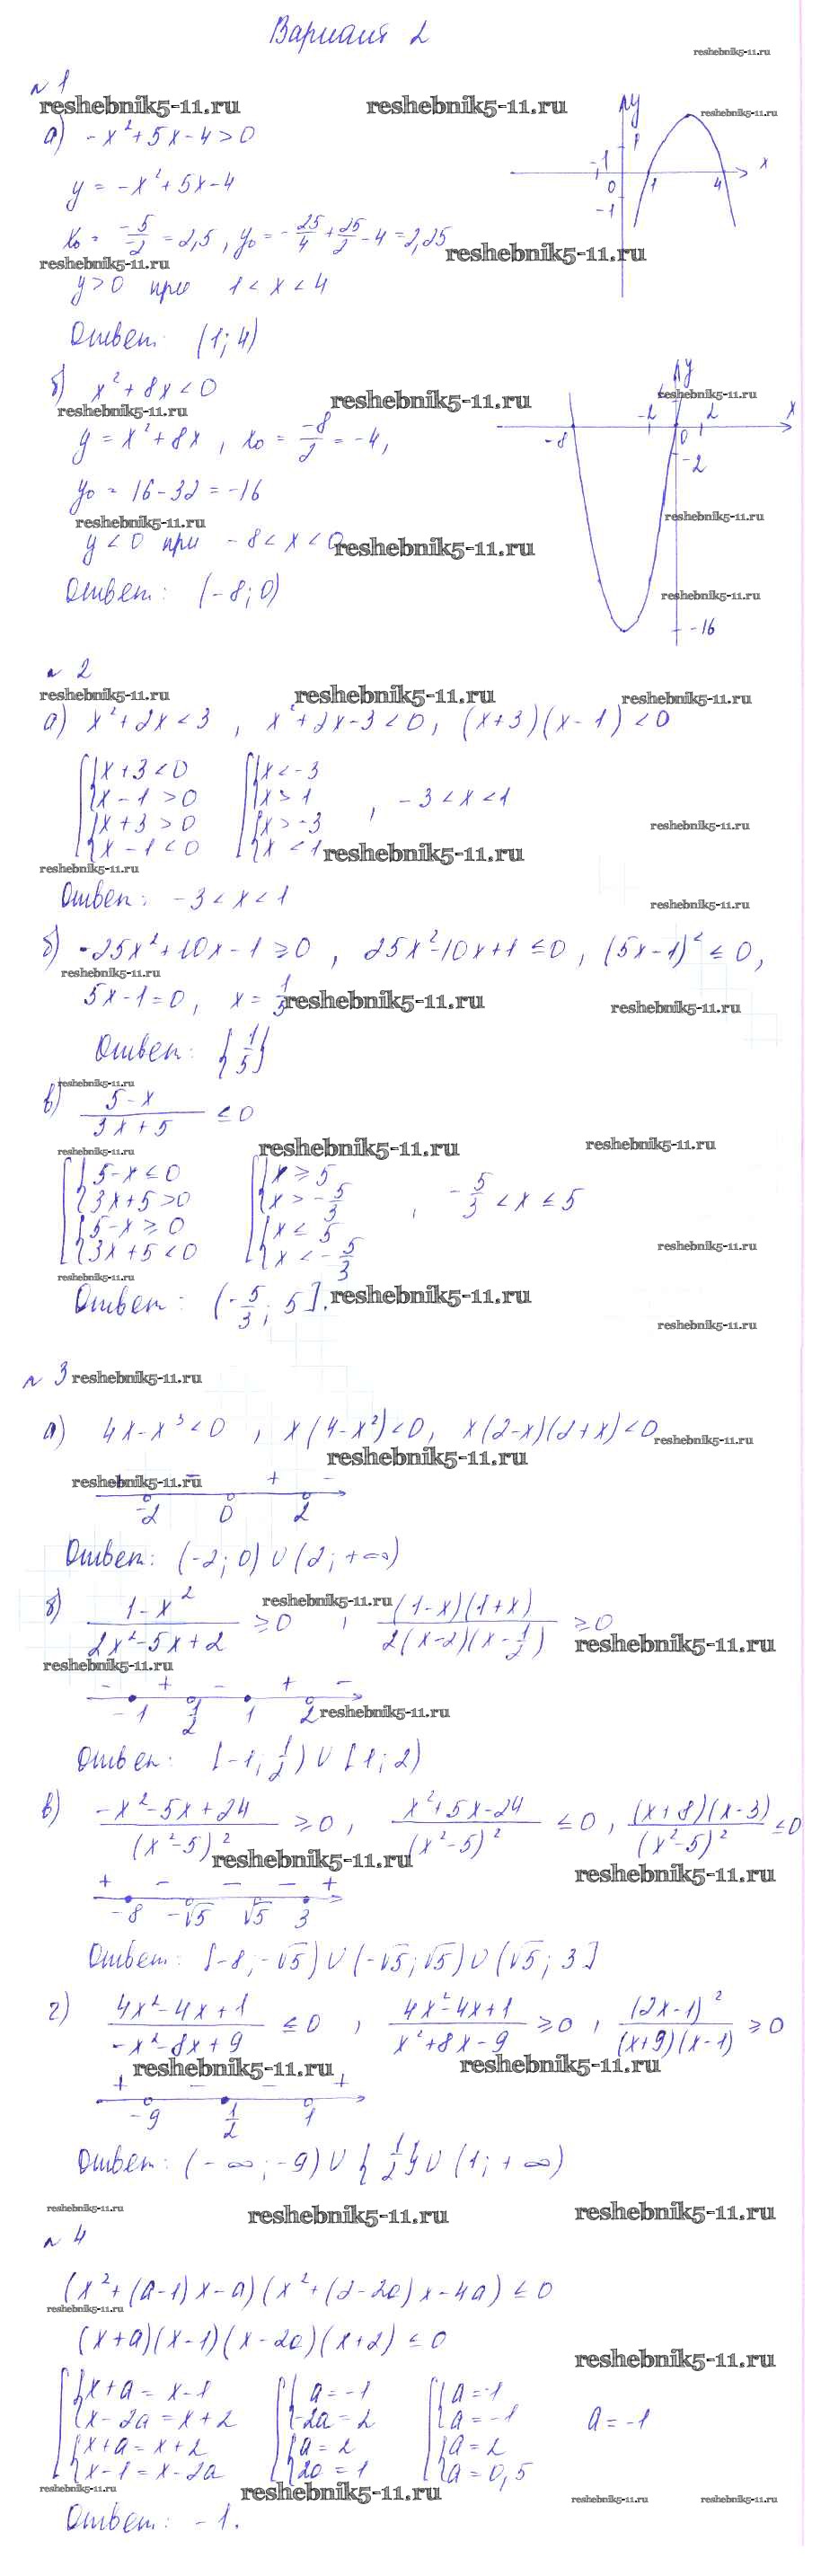 Вариант 2
reshebnik5-11.ru
№ 1
reshebnik5-11.ru reshebnik5-11.ru reshebnik5-11.ru
а) -x²+5x-4>0
y = -x²+5x-4
x₀ = -5/-2 = 2,5, y₀ = -25/4 + 25/2 - 4 = 2,25
reshebnik5-11.ru reshebnik5-11.ru
y>0 при 1<x<4
Ответ: (1; 4)
y 1 -1 0 1 4 x -1
б) x²+8x<0
reshebnik5-11.ru reshebnik5-11.ru reshebnik5-11.ru
y = x²+8x, x₀ = -8/2 = -4,
y₀ = 16-32 = -16
reshebnik5-11.ru reshebnik5-11.ru
y<0 при -8<x<0
reshebnik5-11.ru
Ответ: (-8; 0)
reshebnik5-11.ru
y -8 -2 0 2 x -2 -16
№ 2
reshebnik5-11.ru reshebnik5-11.ru reshebnik5-11.ru
а) x²+2x<3, x²+2x-3<0, (x+3)(x-1)<0
x+3<0 x<-3
x-1>0 x>1 , -3<x<1
x+3>0 x>-3
x-1<0 x<1
reshebnik5-11.ru
reshebnik5-11.ru reshebnik5-11.ru
Ответ: -3<x<1
reshebnik5-11.ru
б) -25x²+10x-1≥0, 25x²-10x+1≤0, (5x-1)²≤0,
reshebnik5-11.ru
5x-1=0, x=1/5
reshebnik5-11.ru reshebnik5-11.ru
Ответ: {1/5}
reshebnik5-11.ru
в) 5-x/3x+5 ≤0
reshebnik5-11.ru reshebnik5-11.ru reshebnik5-11.ru
5-x≤0 x≥5
3x+5>0 x>-5/3 , -5/3<x≤5
5-x≥0 x≤5
3x+5<0 x<-5/3
reshebnik5-11.ru
reshebnik5-11.ru
Ответ: (-5/3; 5].
reshebnik5-11.ru
reshebnik5-11.ru
№ 3 reshebnik5-11.ru
а) 4x-x³<0, x(4-x²)<0, x(2-x)(2+x)<0
reshebnik5-11.ru reshebnik5-11.ru
reshebnik5-11.ru - + -
-2 0 2
Ответ: (-2; 0)∪(2; +∞)
б) 1-x²/2x²-5x+2 ≥0, (1-x)(1+x)/2(x-2)(x-1/2) ≥0
reshebnik5-11.ru reshebnik5-11.ru
reshebnik5-11.ru
- + - + -
-1 1/2 1 2 reshebnik5-11.ru
Ответ: [-1; 1/2)∪[1; 2)
в) -x²-5x+24/(x²-5)² ≥0, x²+5x-24/(x²-5)² ≤0, (x+8)(x-3)/(x²-5)² ≤0
reshebnik5-11.ru reshebnik5-11.ru
+ - - - +
-8 -√5 √5 3
Ответ: [-8; -√5)∪(-√5; √5)∪(√5; 3]
г) 4x²-4x+1/-x²-8x+9 ≤0, 4x²-4x+1/x²+8x-9 ≥0, (2x-1)²/(x+9)(x-1) ≥0
reshebnik5-11.ru reshebnik5-11.ru
+ - - +
-9 1/2 1
Ответ: (-∞; -9)∪{1/2}∪(1; +∞)
reshebnik5-11.ru reshebnik5-11.ru reshebnik5-11.ru
№ 4
(x²+(a-1)x-a)(x²+(2-2a)x-4a)≤0
reshebnik5-11.ru
(x+a)(x-1)(x-2a)(x+2)≤0
reshebnik5-11.ru
x+a=x-1 a=-1 a=-1
x-2a=x+2 -2a=2 a=-1 a=-1
x+a=x+2 a=2 a=2
x-1=x-2a 2a=1 a=0,5
reshebnik5-11.ru reshebnik5-11.ru reshebnik5-11.ru reshebnik5-11.ru
Ответ: -1.